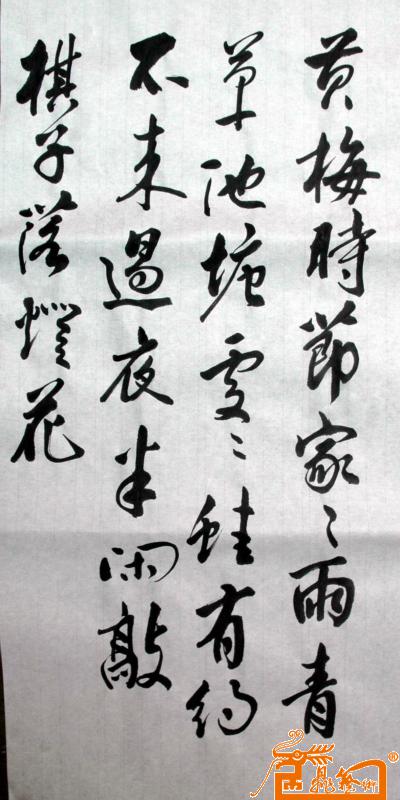 黄梅時節家〻雨青
草池塘處〻蛙有約
不来過夜半闲敲
棋子落燈花
®